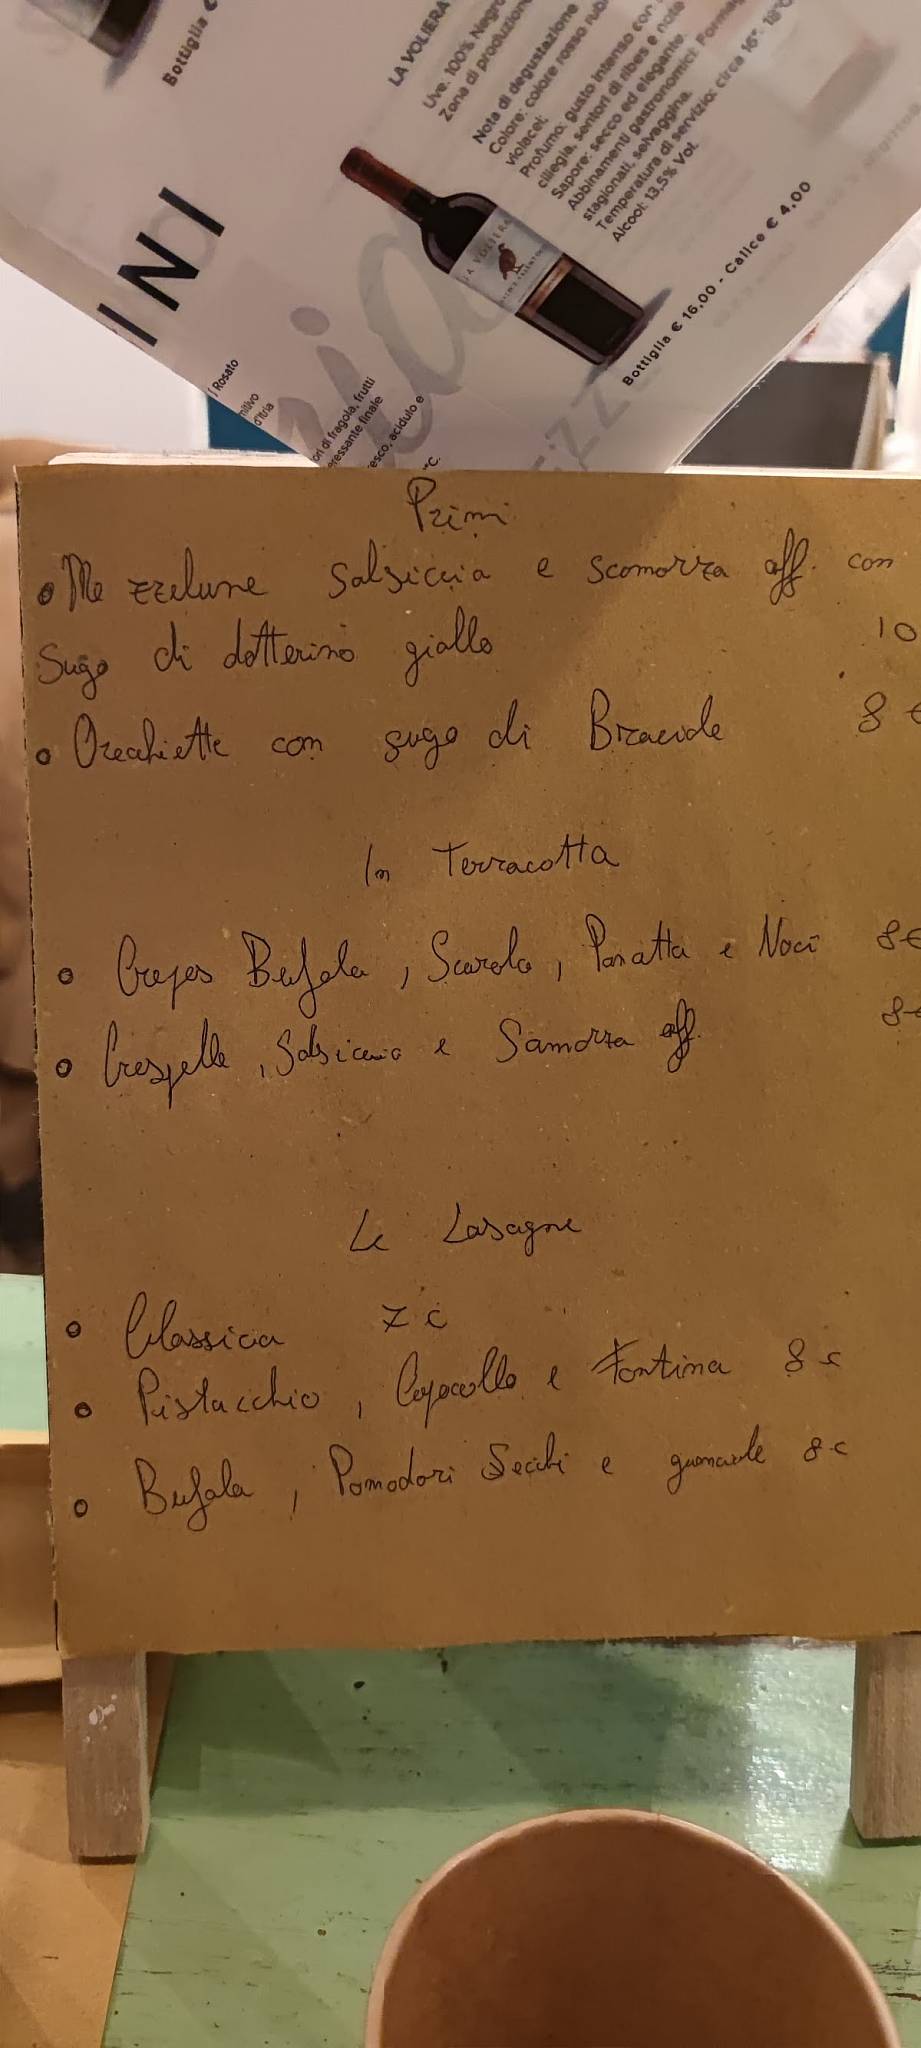 Bottiglia €
LA VOLIERA
Uve: 100% Negro
Zona di produzione
Nota di degustazione
Colore: colore rosso rub
violacei;
Profumo: gusto intenso con
ciliegia, sentori di ribes e note
Sapore: secco ed elegante.
Abbinamenti gastronomici: Formag
stagionati, selvaggina.
Temperatura di servizio: circa 16°- 18°C
Alcool: 13,5% Vol.
Bottiglia € 16,00 - Calice € 4,00
INI
LA VOLIERA
Rosato
mitivo
d'Itria
ori di fragola, frutti
eressante finale
resco, acidulo e
°C.
Primi
• Mezzelune salsiccia e scamorza aff. con
sugo di datterino giallo 10
• Orecchiette con sugo di Braciole 8 €
In Terracotta
• Crepes Bufala, Scarola, Panatta e Noci 8€
• Crespelle, Salsiccia e Samorza aff. 8€
Le Lasagne
• Classica 7 €
• Pistacchio, Capocollo e Fontina 8 €
• Bufala, Pomodori Secchi e guanciale 8 €